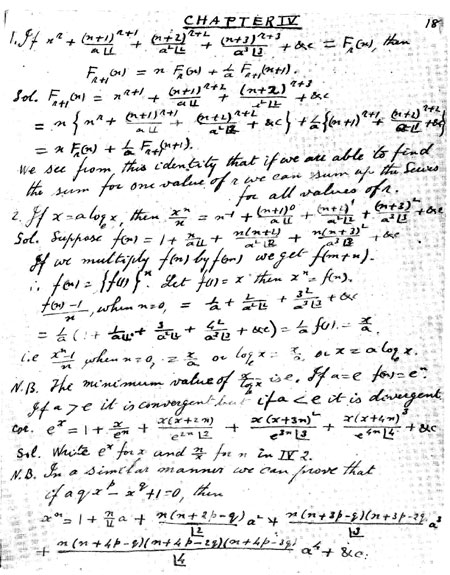 CHAPTER IV 18
1. If x^r + (x+1)^{r+1}/(a⌊1) + (x+2)^{r+2}/(a²⌊2) + (x+3)^{r+3}/(a³⌊3) + &c = F_r(x), then
F_{r+1}(x) = x F_r(x) + 1/a F_{r+1}(x+1).
Sol. F_{r+1}(x) = x^{r+1} + (x+1)^{r+2}/(a⌊1) + (x+2)^{r+3}/(a²⌊2) + &c
= x { x^r + (x+1)^{r+1}/(a⌊1) + (x+2)^{r+2}/(a²⌊2) + &c } + 1/a { (x+1)^{r+1} + (x+2)^{r+2}/(a⌊1) + &c }
= x F_r(x) + 1/a F_{r+1}(x+1).
We see from this identity that if we are able to find
the sum for one value of r we can sum up the Series
for all values of r.
2. If x = a log_e x, then x^n/n = n^{-1} + (n+1)^0/(a⌊1) + (n+2)^1/(a²⌊2) + (n+3)^2/(a³⌊3) + &c
Sol. Suppose f(n) = 1 + n/(a⌊1) + n(n+2)/(a²⌊2) + n(n+3)²/(a³⌊3) + &c
If we multiply f(m) by f(n) we get f(m+n).
∴ f(n) = {f(1)}^n. Let f(1) = x then x^n = f(n).
(f(n)-1)/n, when n=0, = 1/(a⌊1) + 2/(a²⌊2) + 3²/(a³⌊3) + &c
= 1/a (1 + 1/(a⌊1) + 3/(a²⌊2) + 4²/(a³⌊3) + &c) = 1/a f(1) = x/a.
i.e (x^n-1)/n when n=0, = x/a or log_e x = x/a or x = a log_e x.
N.B. The minimum value of x/log x is e. If a=e f(n)=e^n.
If a > e it is convergent but if a < e it is divergent
cor. e^x = 1 + x/e^n + x(x+2n)/(e^{2n}⌊2) + x(x+3n)²/(e^{3n}⌊3) + x(x+4n)³/(e^{4n}⌊4) + &c
Sol. Write e^n for x and x/n for n in IV 2.
N.B. In a similar manner we can prove that
if a q x^p - x^q + 1 = 0, then
x^n = 1 + n/⌊1 a + n(n+2p-q)/⌊2 a² + n(n+3p-q)(n+3p-2q)/⌊3 a³
+ n(n+4p-q)(n+4p-2q)(n+4p-3q)/⌊4 a⁴ + &c.